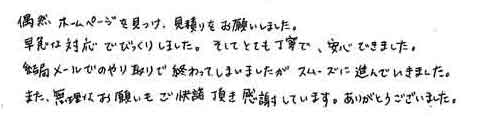 偶然 ホームページを見つけ、見積りをお願いしました。
早急な対応でびっくりしました。そしてとても丁寧で、安心できました。
結局メールでのやり取りで終わってしまいましたがスムーズに進んでいきました。
また、無理なお願いもご快諾頂き感謝しています。ありがとうございました。